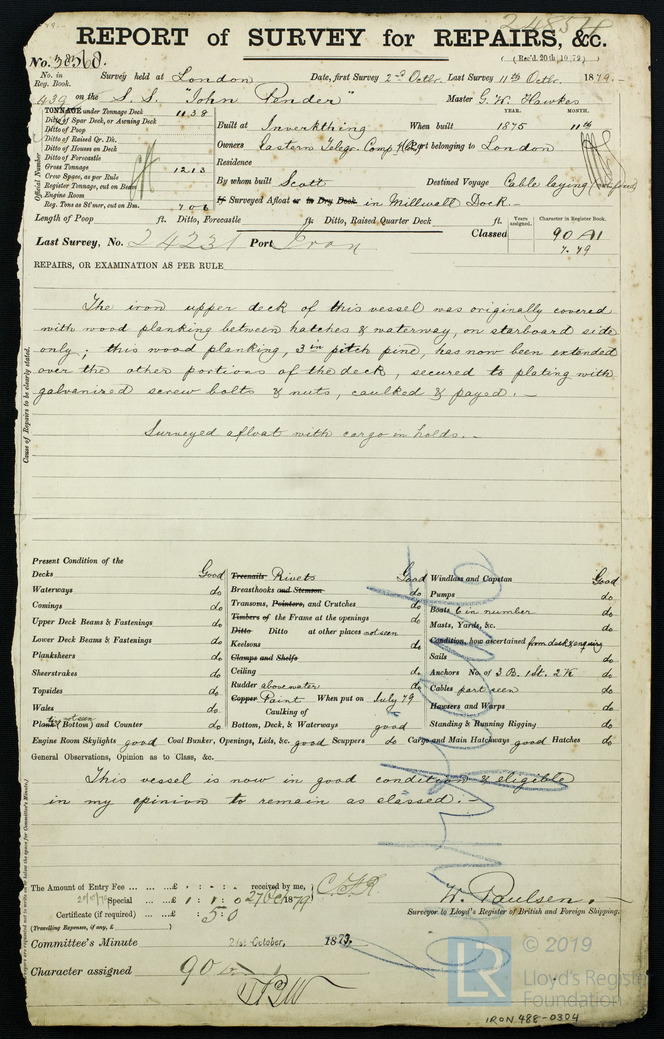 24854
REPORT of SURVEY for REPAIRS, &c.
No. 38568. (Rec'd. 20th 10.79)
No. in Reg. Book. Survey held at London Date, first Survey 2nd Octbr. Last Survey 11th Octbr. 1879.-
439 on the S.S. "John Pender" Master G. W. Hawkes
TONNAGE under Tonnage Deck 1138
Ditto of Spar Deck, or Awning Deck
Ditto of Poop
Ditto of Raised Qr. Dk.
Ditto of Houses on Deck
Ditto of Forecastle
Gross Tonnage 1213
Crew Space, as per Rule
Register Tonnage, cut on Beam
Engine Room
Reg. Tons as St'mer, cut on Bm. 706
Official Number
YEAR. MONTH.
Built at Inverkthing When built 1875 11th
Owners Eastern Telegr. Comp. Port belonging to London
Residence
By whom built Scott Destined Voyage Cable laying
If Surveyed Afloat or in Dry Dock in Millwall Dock.-
Length of Poop ft. Ditto, Forecastle ft. Ditto, Raised Quarter Deck ft.
Years assigned. Character in Register Book.
Last Survey, No. 24231 Port Iron Classed 90 A1
7.79
REPAIRS, OR EXAMINATION AS PER RULE
Cause of Repairs to be clearly stated.
The iron upper deck of this vessel was originally covered
with wood planking between hatches & waterway, on starboard side
only; this wood planking, 3 in pitch pine, has now been extended
over the other portions of the deck, secured to plating with
galvanized screw bolts & nuts, caulked & payed.-
Surveyed afloat with cargo in holds.-
Present Condition of the
Decks Good
Waterways do
Comings do
Upper Deck Beams & Fastenings do
Lower Deck Beams & Fastenings do
Planksheers do
Sheerstrakes do
Topsides do
Wales do
Plating (Bottom) not seen and Counter do
Treenails Rivets Good
Breasthooks and Stemson do
Transoms, Pointers, and Crutches do
Timbers of the Frame at the openings do
Ditto Ditto at other places not seen
Keelsons do
Clamps and Shelfs
Ceiling do
Rudder above water do
Copper Paint When put on July 79
Caulking of
Bottom, Deck, & Waterways good
Windlass and Capstan Good
Pumps do
Boats 6 in number do
Masts, Yards, &c. do
Condition, how ascertained from deck & enquiry
Sails do
Anchors No. of 3 B. 1 St. 2 K do
Cables part seen do
Hawsers and Warps do
Standing & Running Rigging do
Engine Room Skylights good Coal Bunker, Openings, Lids, &c. good Scuppers do Cargo and Main Hatchways good Hatches do
General Observations, Opinion as to Class, &c.
This vessel is now in good condition & eligible
in my opinion to remain as classed.-
The Amount of Entry Fee ... £ : - : - received by me,
Special ... £ 1 : 1 : 0 27 Oct 1879
Certificate (if required) ... £ : 5 : 0
(Travelling Expenses, if any, £ )
W. Paulsen.-
Surveyor to Lloyd's Register of British and Foreign Shipping.
Committee's Minute 21st October, 1879.
Character assigned 90
© 2019
LR
Lloyd's Register
Foundation
IRON 488-0304